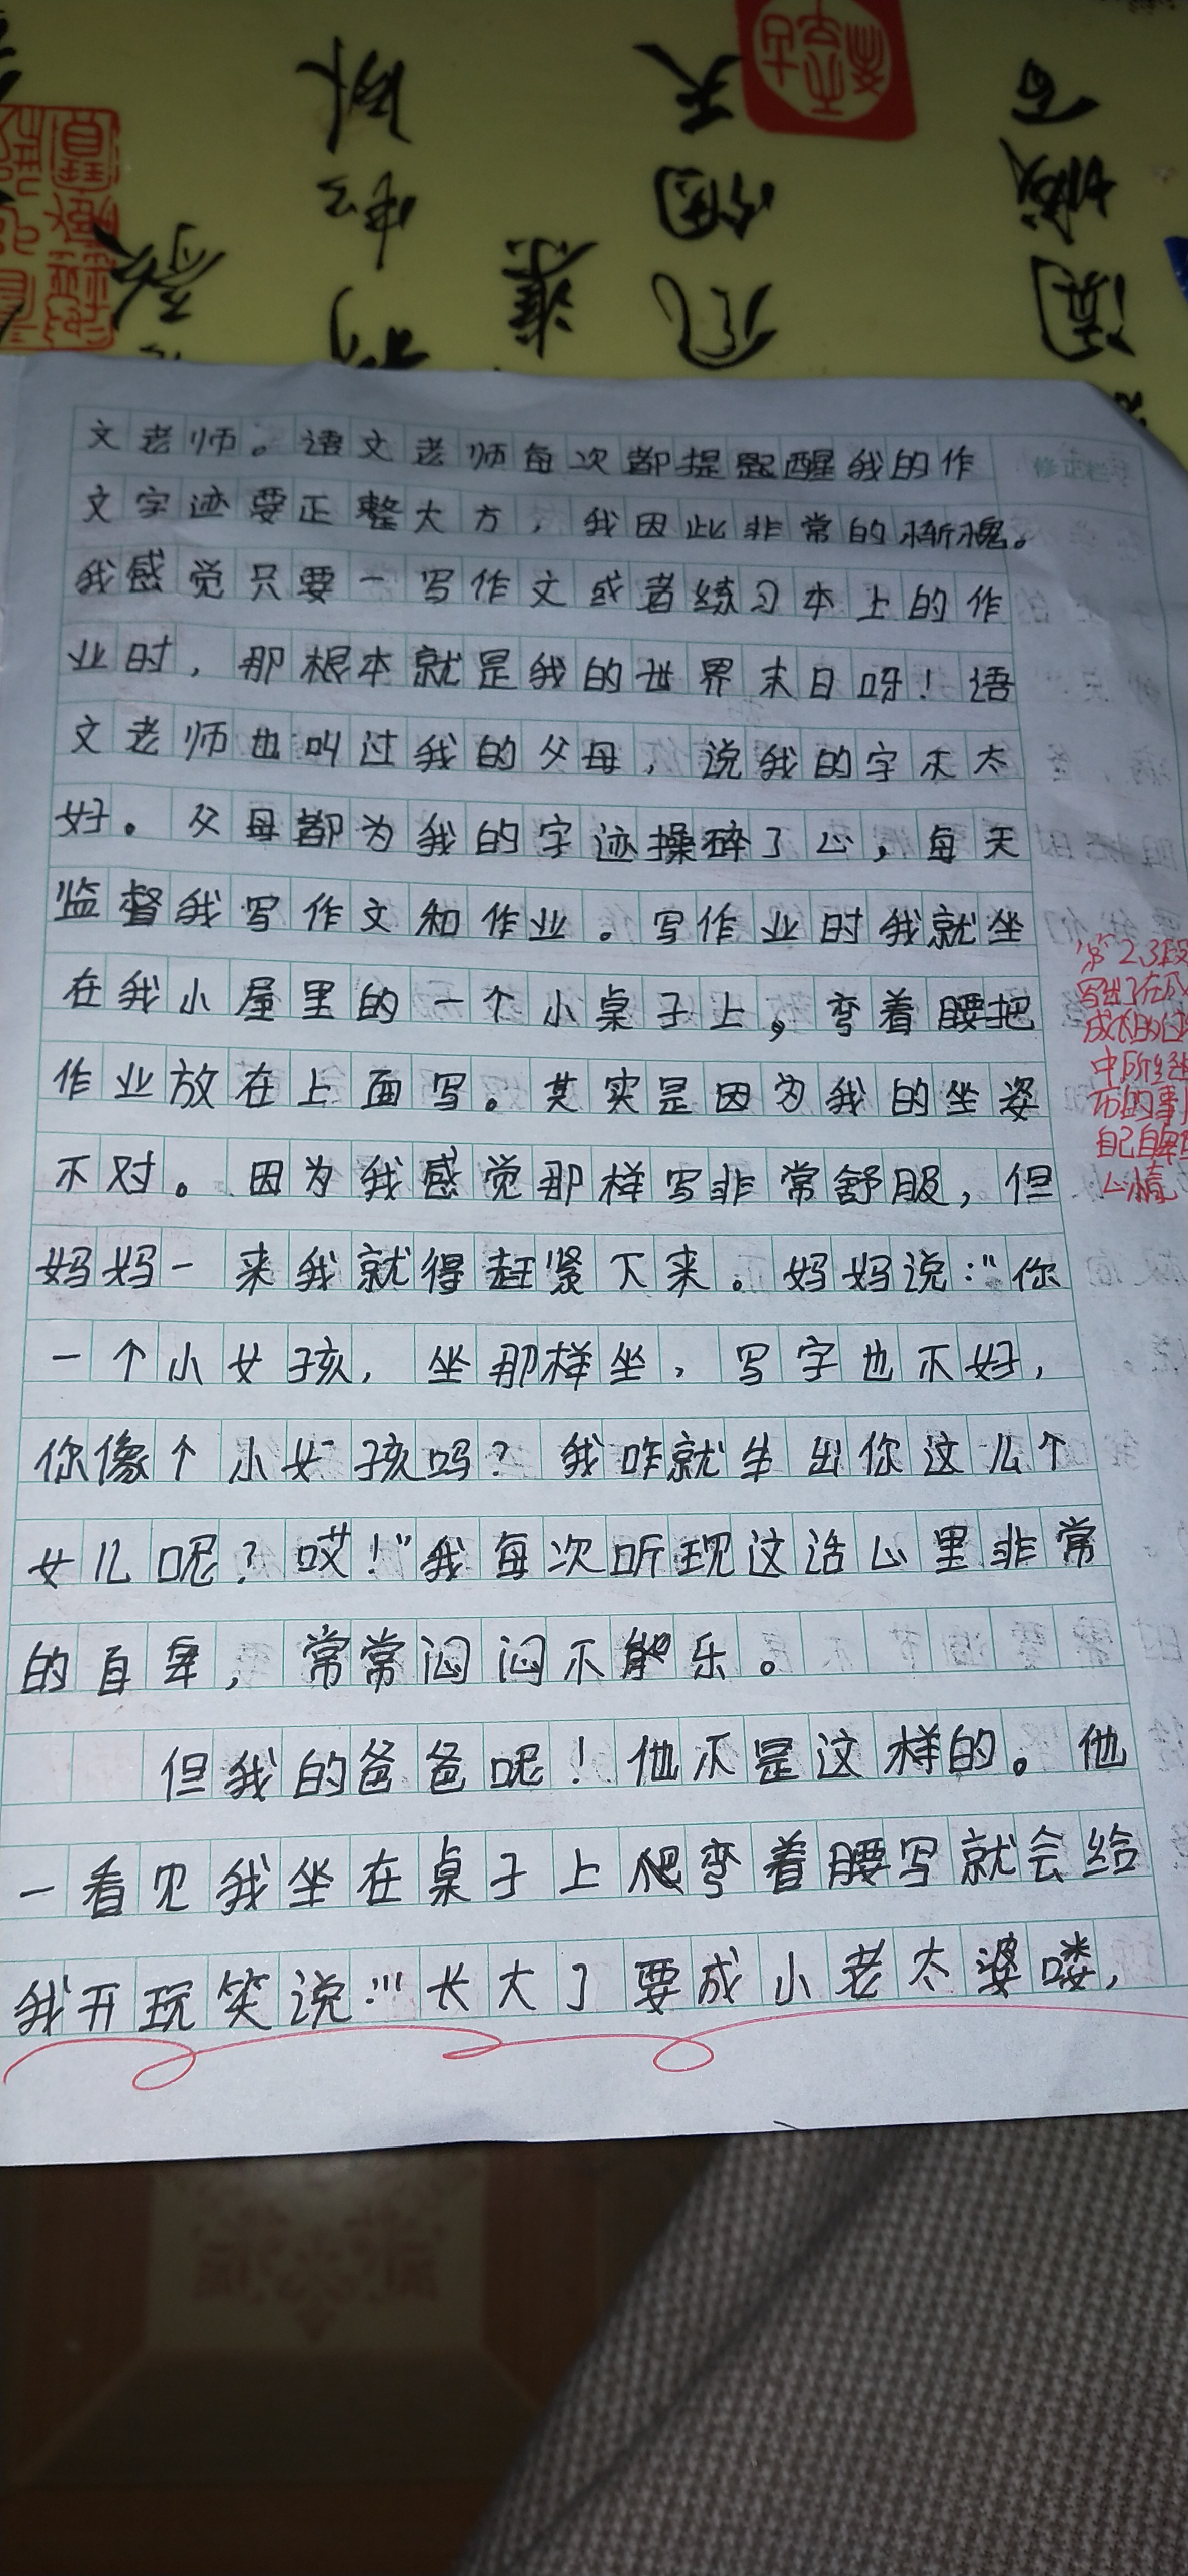 文老师。语文老师每次都提醒我的作
文字迹要正整大方，我因此非常的惭愧。
我感觉只要一写作文或者练习本上的作
业时，那根本就是我的世界末日呀！语
文老师也叫过我的父母，说我的字不太
好。父母都为我的字迹操碎了心，每天
监督我写作文和作业。写作业时我就坐
在我小屋里的一个小桌子上，弯着腰把
作业放在上面写。其实是因为我的坐姿
不对。因为我感觉那样写非常舒服，但
妈妈一来我就得赶紧下来。妈妈说："你
一个小女孩，坐那样坐，写字也不好，
你像个小女孩吗？我咋就生出你这么个
女儿呢？哎！"我每次听现这话心里非常
的自卑，常常闷闷不乐。
但我的爸爸呢！他不是这样的。他
一看见我坐在桌子上爬弯着腰写就会给
我开玩笑说："长大了要成小老太婆喽，
修正栏
第2.3段
写出了在
成长的过
中所经
历的事
自己自卑
心情